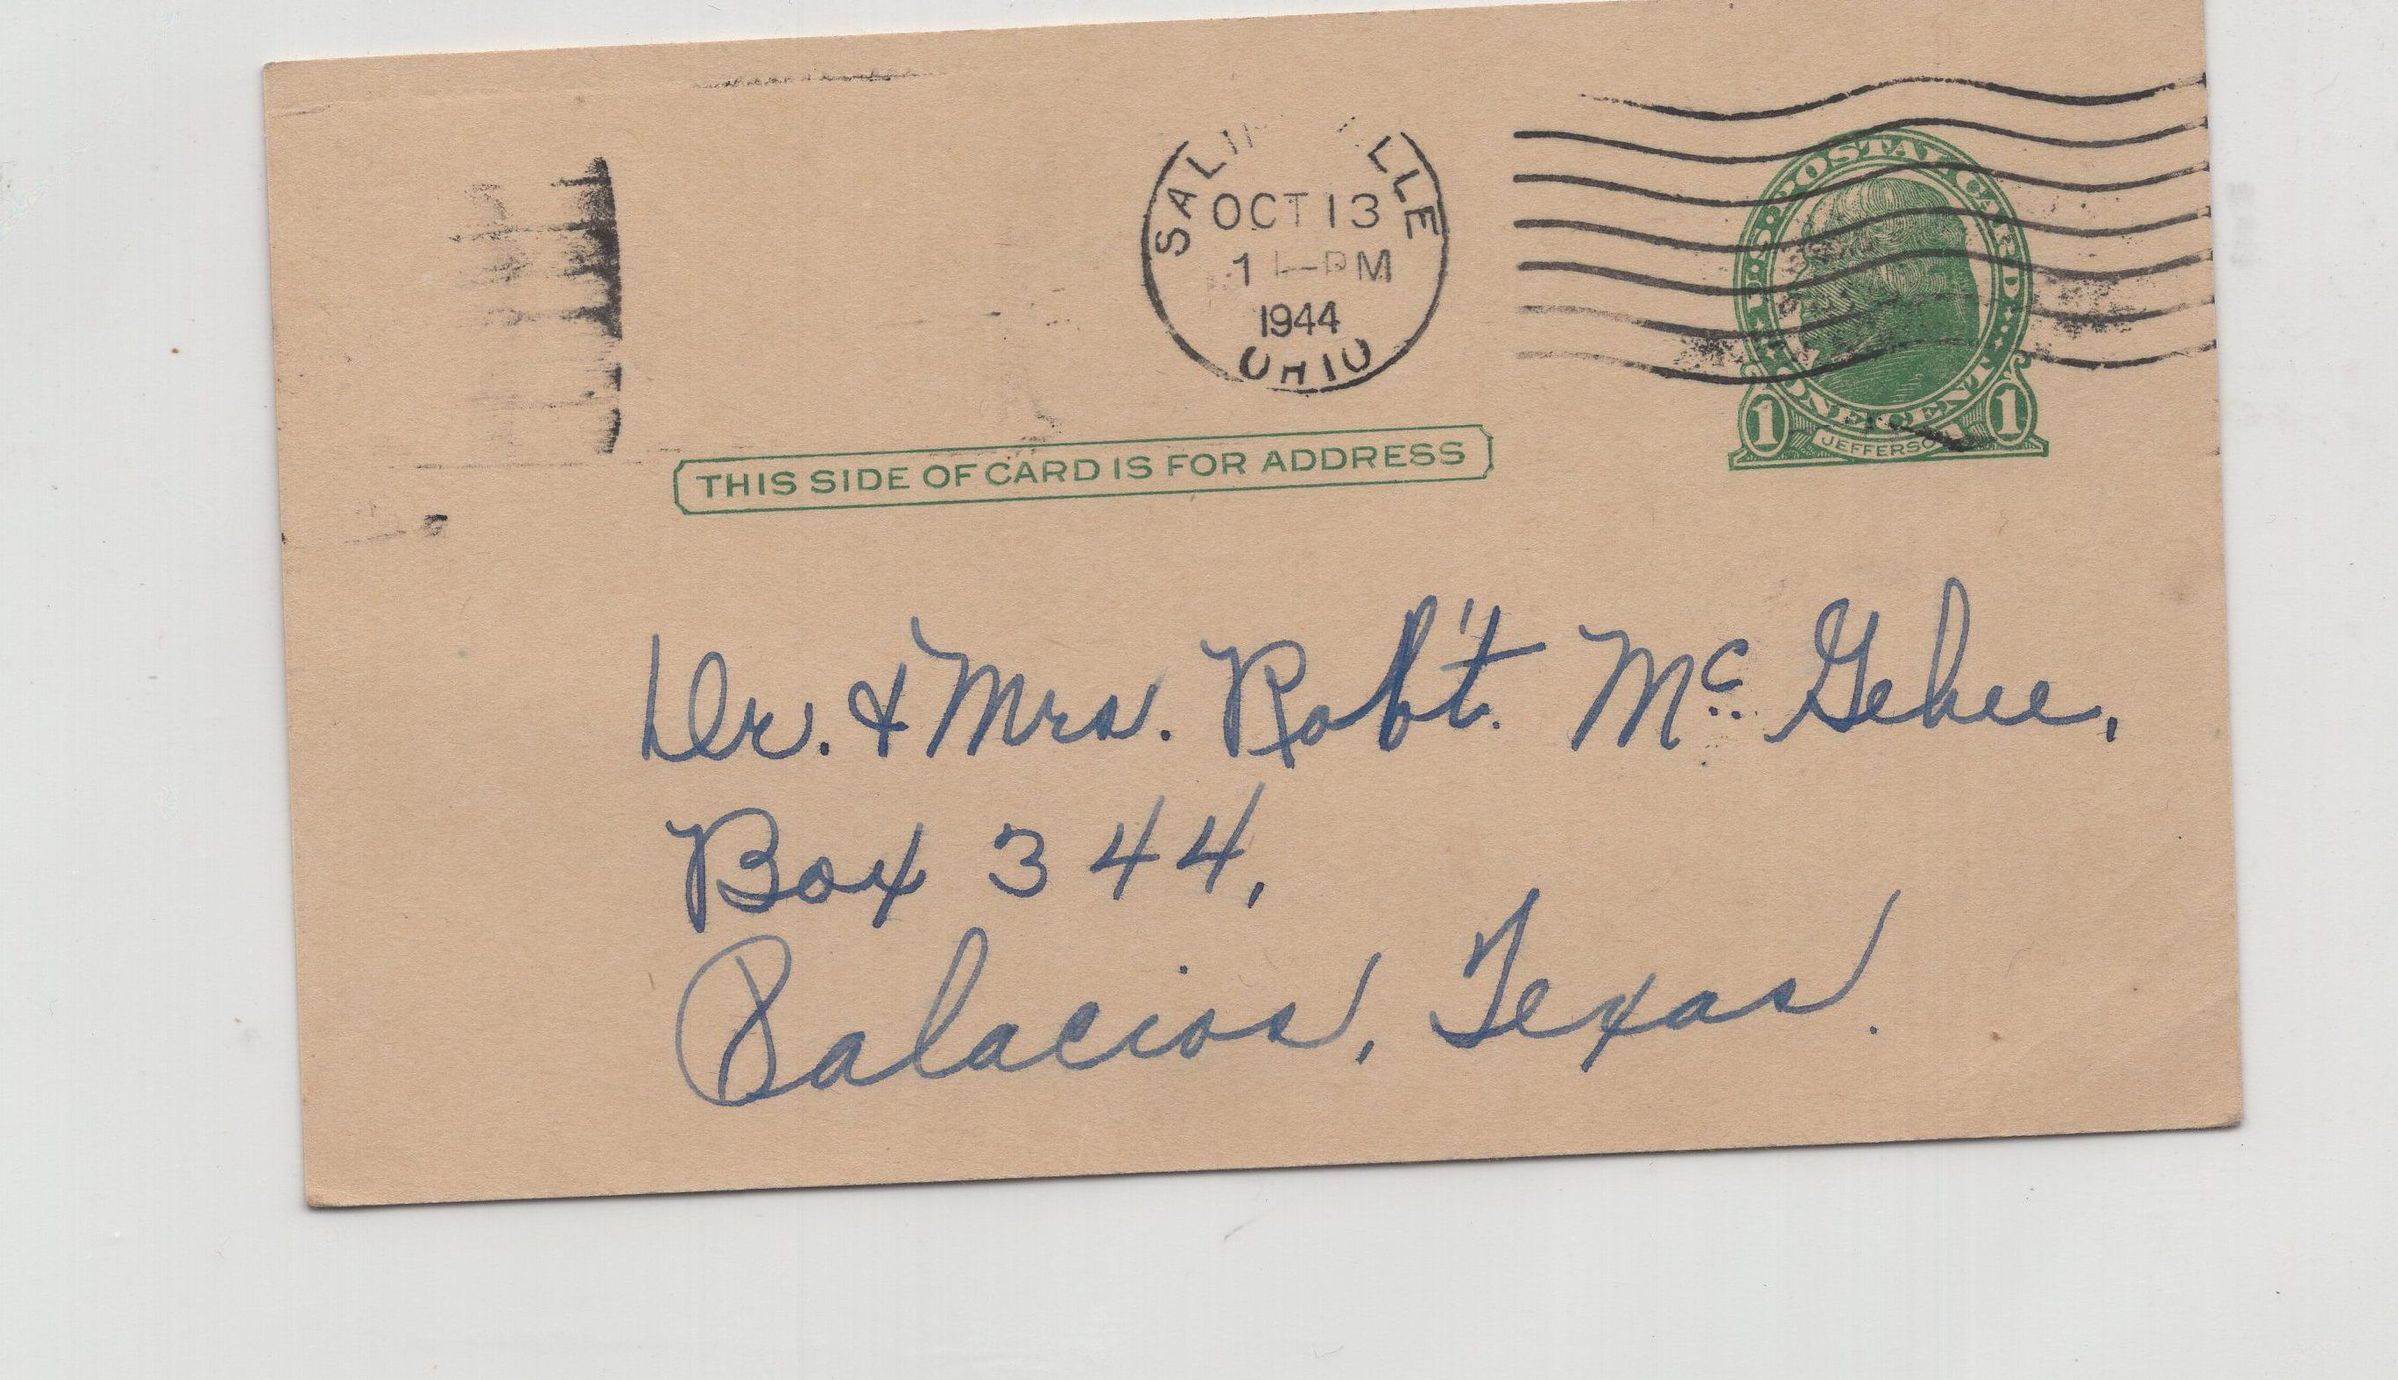 OCT 13
PM
1944
OHIO
U·S·POSTAL CARD
ONE CENT
1 JEFFERSON 1
THIS SIDE OF CARD IS FOR ADDRESS
Dr. & Mrs. Rob't. Mc. Gehee,
Box 344,
Palacios, Texas.